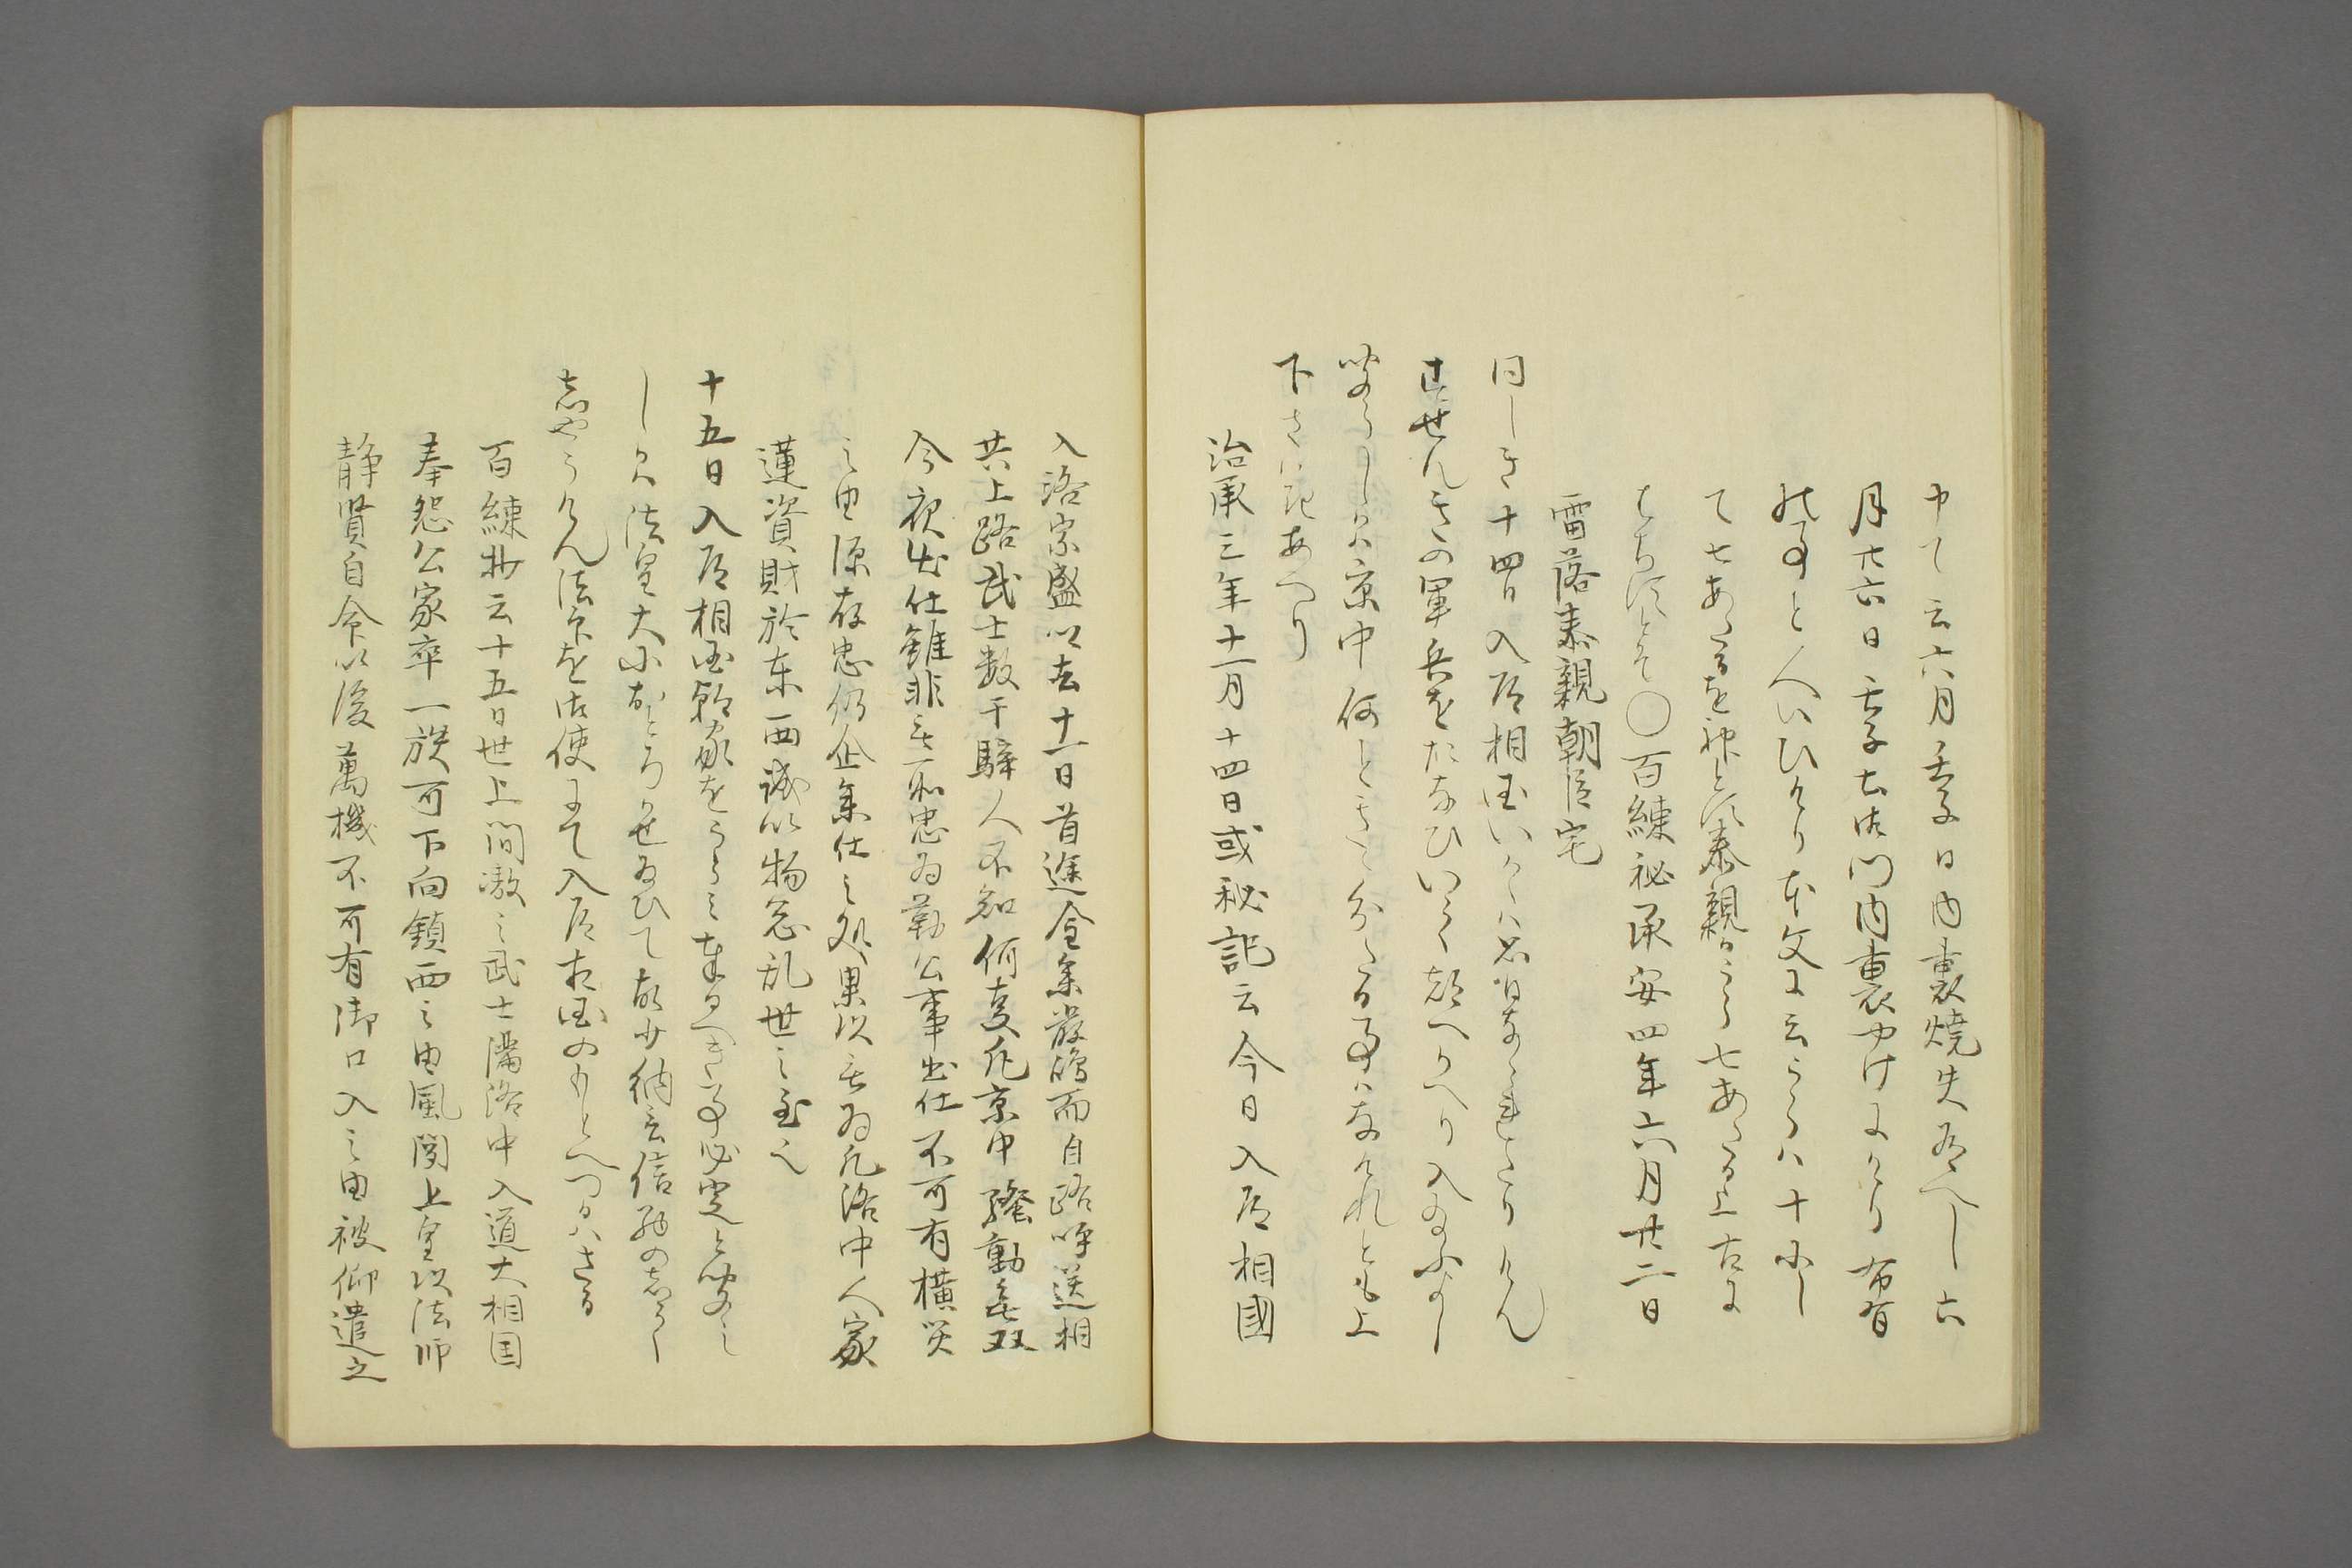 申て云六月壬子日内裏焼失有へし六
月廿六日壬子土御門内裏やけにけり希有
の事と人いひけり本文に云うらは十にし
て七あたるを神とす泰親かうら七あたる上古に
もちすとそ○百練秘承安四年六月廿二日
雷落泰親朝臣宅
同しき十四日入道相国いかゝは思はなされたりけん
すせんきの軍兵をたなひいて都へかへり入給ふよし
聞えしかは京中何ときゝ分たる事はなけれとも上
下さはきあへり
治承三年十一月十四日或秘記云今日入道相國
入洛宗盛以去十一日首途令参厳嶋而自路呼送相
共上路武士数千騎人不知何事凡京中騒動無双
今夜出仕雖非無所忠為勤公事出仕不可有横災
之由深存忠仍企参仕之処果以無為凡洛中人家
運資財於東西誠以物忩乱世之至也
十五日入道相国朝家をうらみ奉るへき事必定と聞え
しかは法皇大におとろかせ給ひて故少納言信西の子そく
しやうけん法印を御使にて入道相国のもとへつかはさる
百練抄云十五日世上間嗷々武士満洛中入道大相国
奉怨公家卒一族可下向鎮西之由風聞上皇以法師
静賢自今以後萬機不可有御口入之由被仰遣之